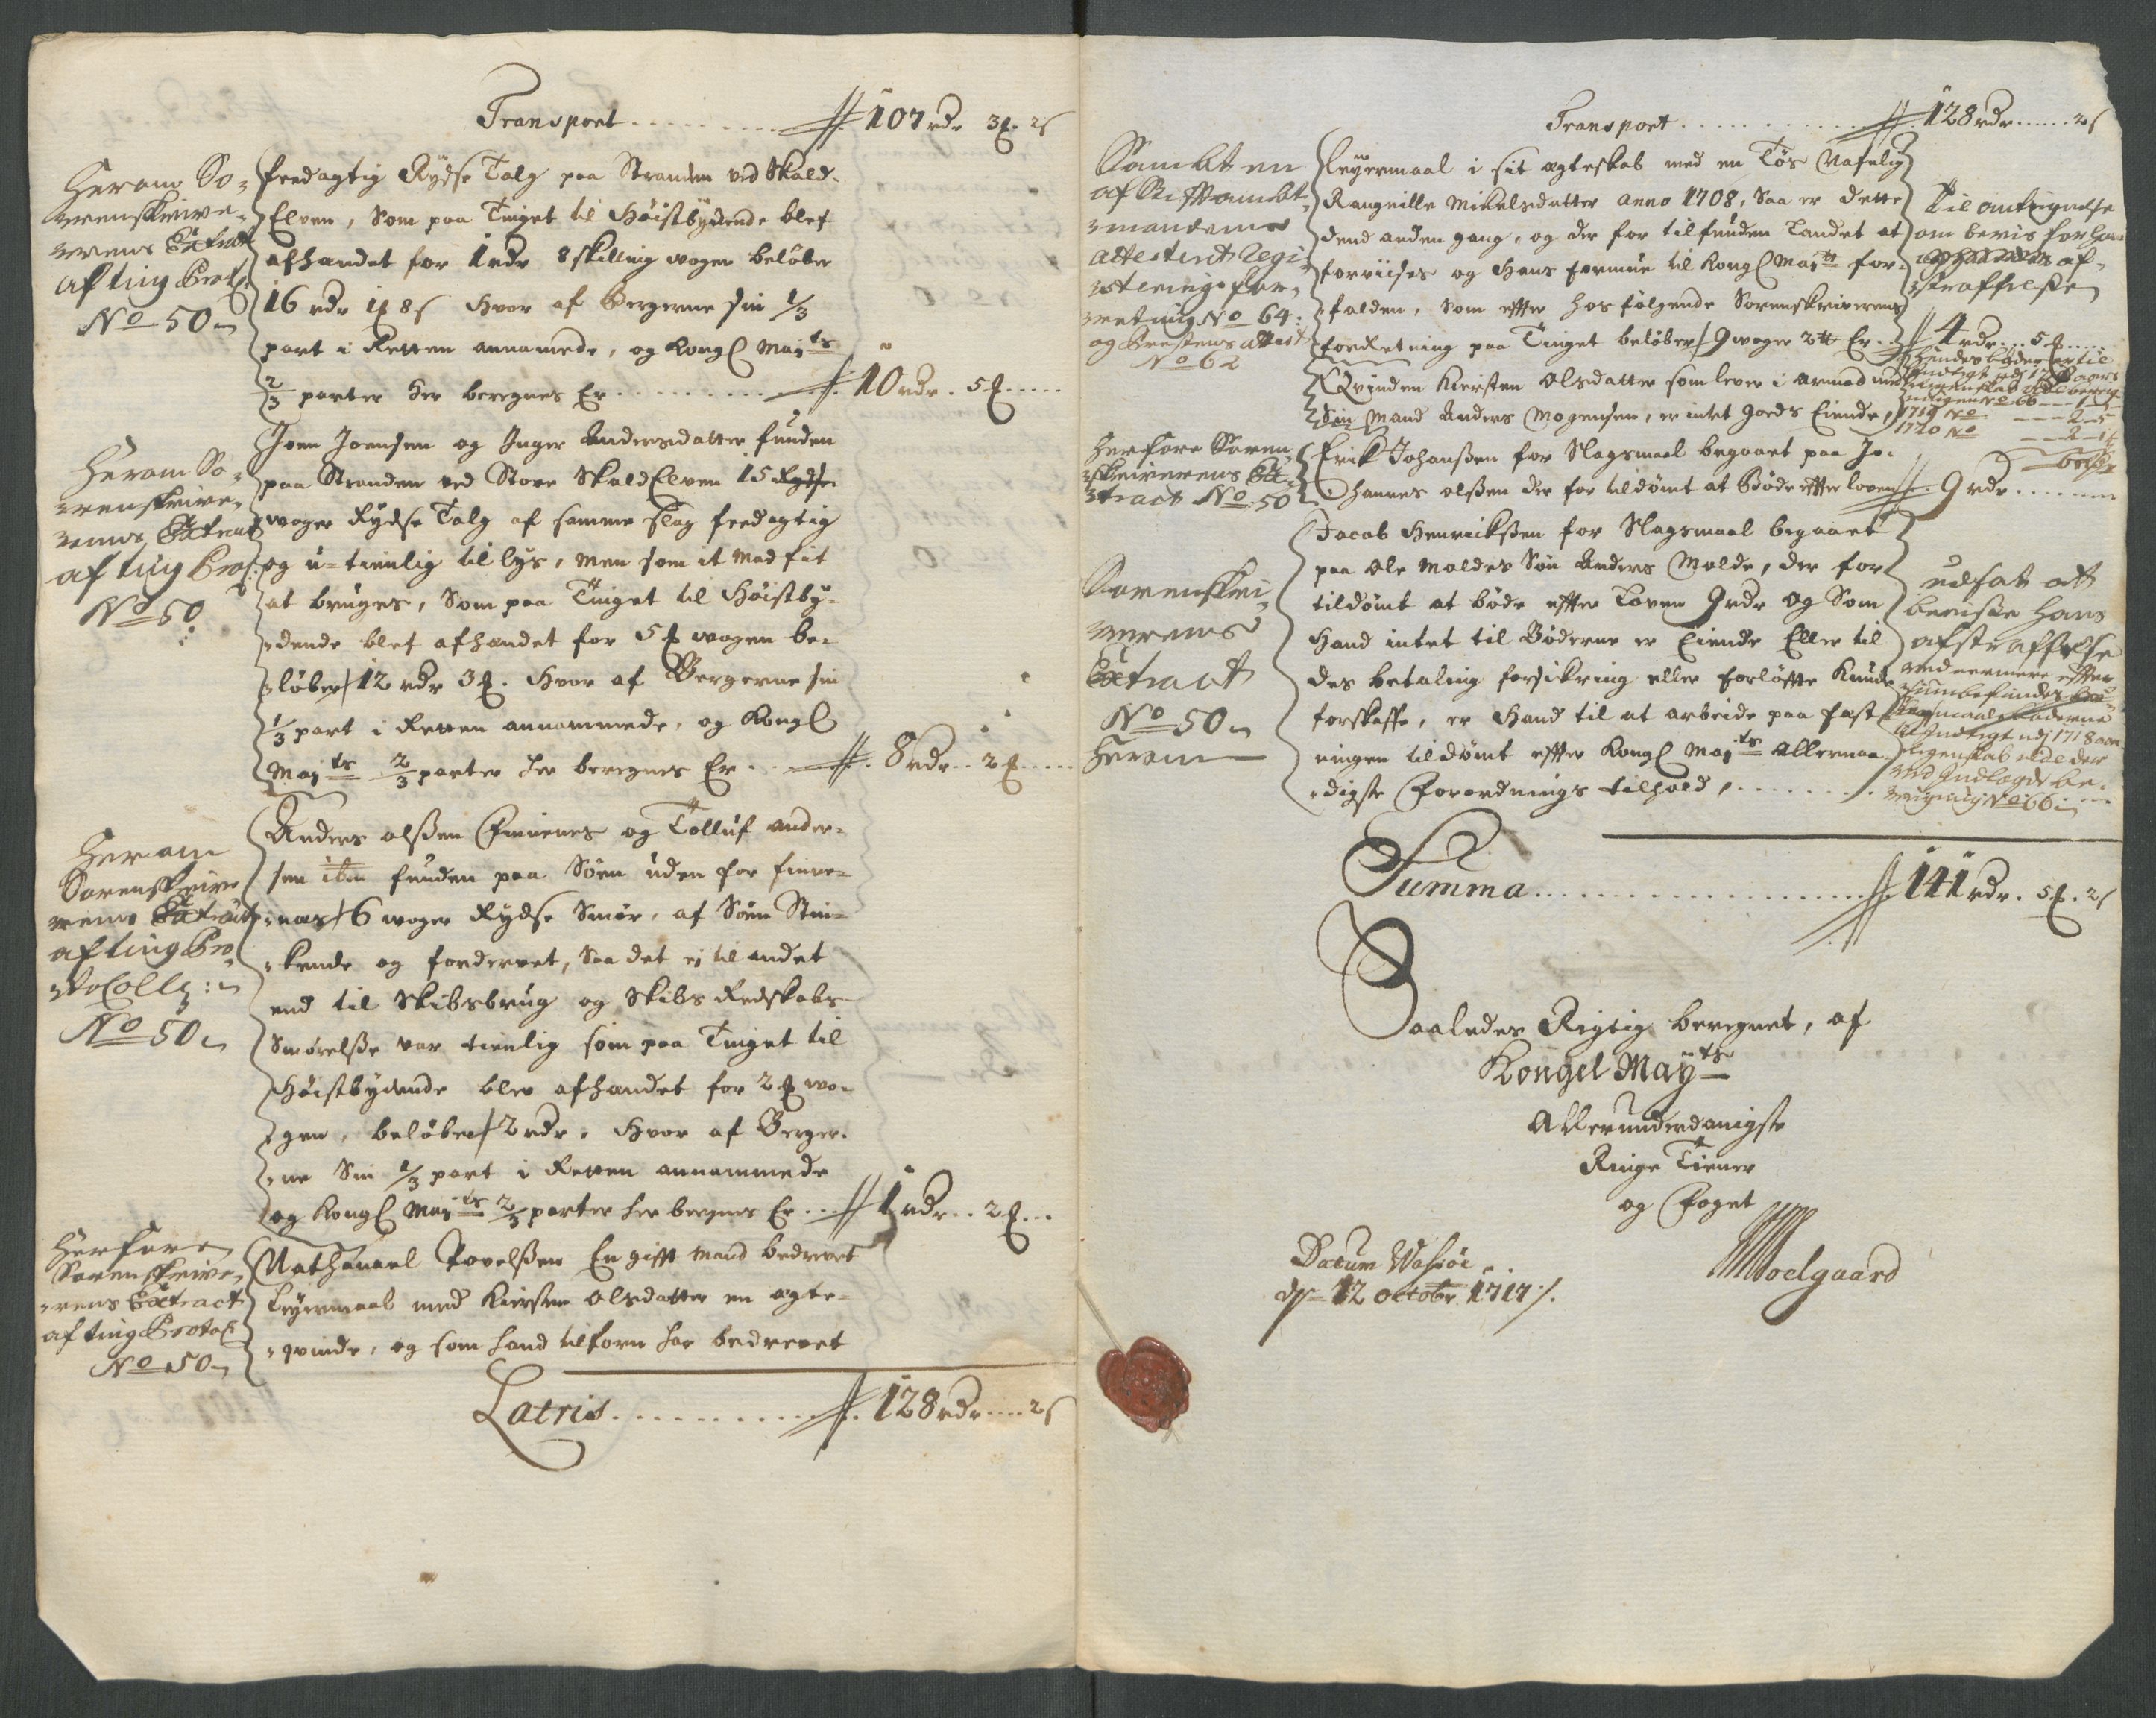 Transport . . . . . . . . # 107 rdr 3 ℔. 2 s
Herom So-
renskrive-
rens Extract
af ting Prot:
No 50
fordagtig Rydse Talg paa Stranden ved Skald-
Elven, Som paa Tinget til Høistbydende blef
afhandet for 1 rdr 8 skilling wogen beløber
16 rdr 1 ℔ 8 s Hvor af Bergerne sin 1/3
part i Retten annamede, og Kongl Mayts
2/3 parter her beregnes Er . . . . . . . . # 10 rdr. 5 ℔ . . . .
Herom So-
renskrive-
rens Extract
af ting Prot:
No 50
Joen Joensen og Inger Andersdatter funden
paa Stranden ved Store SkaldElven 15 Rydse
woger Rydse Talg af samme slag fordagtig
og u-tienlig til lys, men som it Madfit
at bruges, Som paa Tinget til Høistby-
dende blef afhandet for 5 ℔ wogen be-
løber/ 12 rdr 3 ℔. Hvor af Bergerne sin
1/3 part i Retten annammede, og Kongl
Mayts 2/3 parter her beregnes Er . . . # 8 rdr . . 2 ℔ . . . .
Her om
Sorenskrive
rens Extract
af ting Pro
tocoll:
No 50
Anders olßen Finenes og Tolluf ander-
sen ibm funden paa Søen uden for finne-
næs/ 6 woger Rydse Smør, af Søen Stin-
kende og fordervet, Saa det ei til andet
end til Skibsbrug og Skibs Redskabs
Smørelße var tienlig som paa Tinget til
Høistbydende blev afhandet for 2 ℔ wo-
gen, beløber/ 2 rdr. Hvor af Berger-
ne Sin 1/3 part i Retten annammede
og Kongl Mayts 2/3 parter her beregnes Er . . . # 1 rdr . . 2 ℔ . . .
Herfore
Sorenskrive-
rens Extract
af ting Protocl
No 50
Nathanael Povelßen En gifft mand bedrevet
Leyermaal med Kiersten Olsdatter en ægte-
qvinde, og som hand tilforn har bedrevet
Latris . . . . . . . . . # 128 rdr . . . . 2 s
Transport . . . . . . . . . # 128 rdr . . . . . 2 s
Sambt en
af Stifftambt-
mandens
attesterit Regi-
stering for-
retning No 64:
og Prestens attest
No 62
Leyermaal i sit ægteskab med en Tøs Nafnlig
Rangnille Mikelsdatter Anno 1708, Saa er dette
dend anden gang, og der for tilfunden Landet at
forviises og Hans formue til Kongl Mayts for-
falden, Som effter hos følgende Sorenskriverens
forretning paa Tinget beløber/ 9 woger 2 ℔ Er . . # 4 rdr . . . 5 ℔ . . . .
Til antegnelse
om bevis for hans
af-
straffelse
Qvinden Kiersten Olsdatter som lever i armod med
Sin Mand Anders Mogensen, er intet Gods Eiende,
1719 No — — 2 — 5
1720 No — — 2 — 1 ℔
Herfore Soren-
skriverens Ex-
tract No 50
Erik Johanßen for Slagsmaal begaaet paa Jo-
hannes olßen der for tildømt at Bøde effter loven # 9 rdr . . . . . . .
Sorenskri-
verens
Extract
No 50
Herom
Jacob Henrikßen for Slagsmaal begaaet
paa Ole Moldes Søn Anders Molde, der for
tildømt at bøde effter Loven 9 rdr og Som
Hand intet til Bøderne er Eiende Eller til
des betaling forsikring eller forløffte Kunde
forskaffe, er Hand til at arbeide paa fæst-
ningen tildømt effter Kongl Mayts Allernaa-
digste Forordnings tilhold, . . . . . . . .
udsat at
beviise hans
afstraffelse
ved nermere effter
Summa . . . . . . . . . . . . . . . # 141 rdr. 5 ℔. 2 s
Saaledes Rigtig beregnet, af
Kongel Mayts
Allerunderdanigste
Ringe Tiener
og Foget
Datum Wasøe
dn 12 octobr 1717 ./.
Wolgaard